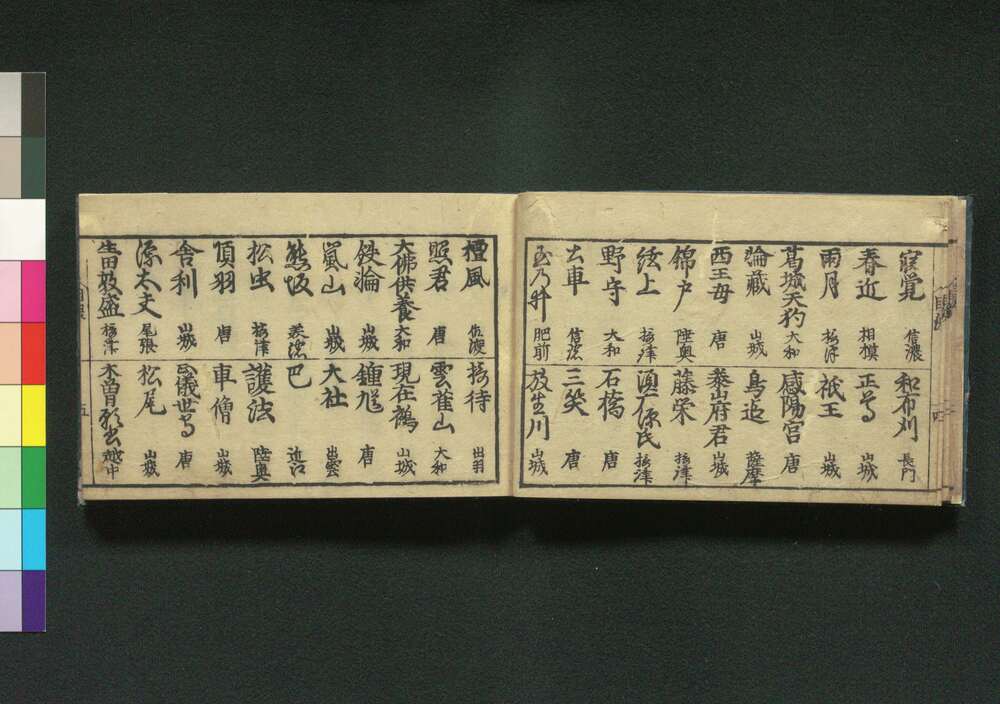 寝覚 信濃 和布刈 長門
春近 相模 正尊 山城
雨月 摂津 祇王 山城
葛城天狗 大和 咸陽宮 唐
輪蔵 山城 鳥追 薩摩
西王母 唐 泰山府君 山城
錦戸 陸奥 藤栄 摂津
絃上 摂津 須广源氏 摂津
野守 大和 石橋 唐
土車 信濃 三笑 唐
玉乃井 肥前 放生川 山城
檀風 佐渡 接待 出羽
照君 唐 雲雀山 大和
大佛供養 大和 現在鵺 山城
鉄輪 山城 鍾馗 唐
嵐山 山城 大社 出雲
熊坂 美濃 巴 近江
松虫 摂津 護法 陸奥
項羽 唐 車僧 山城
舎利 山城 正儀世尊 唐
源太夫 尾張 松尾 山城
生田敦盛 摂津 木曽願書 越中
五